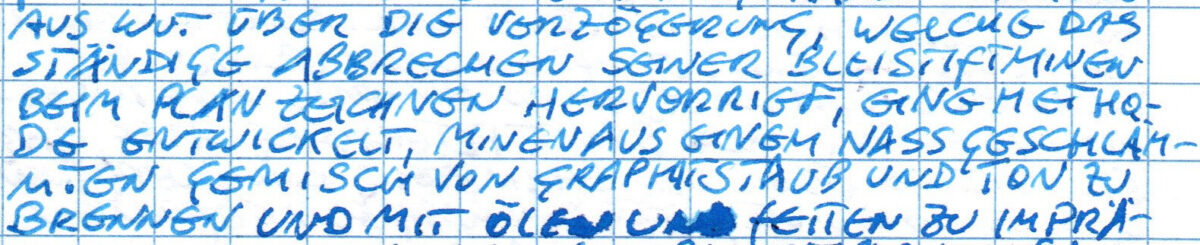 AUS WUT ÜBER DIE VERZÖGERUNG, WELCHE DAS
STÄNDIGE ABBRECHEN SEINER BLEISTIFTMINEN
BEIM PLANZEICHNEN HERVORRIEF, EINE METHO-
DE ENTWICKELT, MINEN AUS EINEM NASS GESCHLÄM-
MTEN GEMISCH VON GRAPHITSTAUB UND TON ZU
BRENNEN UND MIT ÖLEN UND FETTEN ZU IMPRÄ-